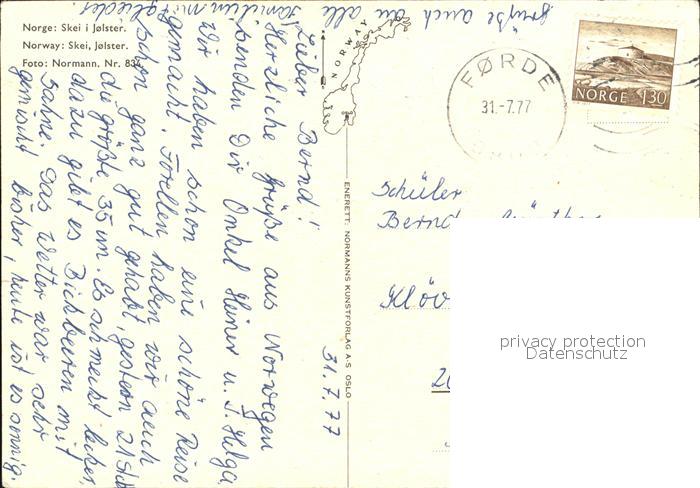 Norge: Skei i Jølster.
Norway: Skei, Jølster.
Foto: Normann. Nr. 834
Lieber Bernd!
Herzliche Grüße aus Norwegen
senden Dir Onkel Heiner u. T. Helga.
Wir haben schon eine schöne Reise
gemacht. Forellen haben wir auch
schon ganz gut gehabt, gestern 21 Stck
die größte 35 cm. Es schmeckt lecker,
dazu gibt es Bickbeeren mit
Sahne. Das Wetter war sehr
gemischt bisher, heute ist es sonnig.
grüße auch an alle
Familienmitglieder.
31.7.77
NORWAY
ENERETT: NORMANNS KUNSTFORLAG A-S OSLO
FØRDE
31.-7.77
NORGE 130
Schüler
Bernd
Klöv
privacy protection
Datenschutz